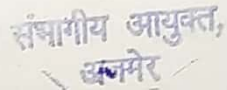 संभागीय आयुक्त,
अजमेर